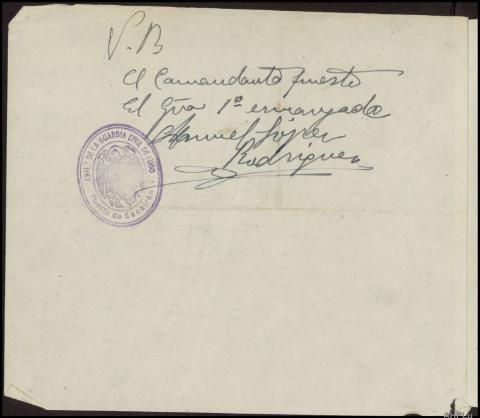 V. B
El Comandante puesto
El Gra 1º encargado
Manuel López
Rodríguez
GUARDIA CIVIL DE LUGO
Puesto de Escairón